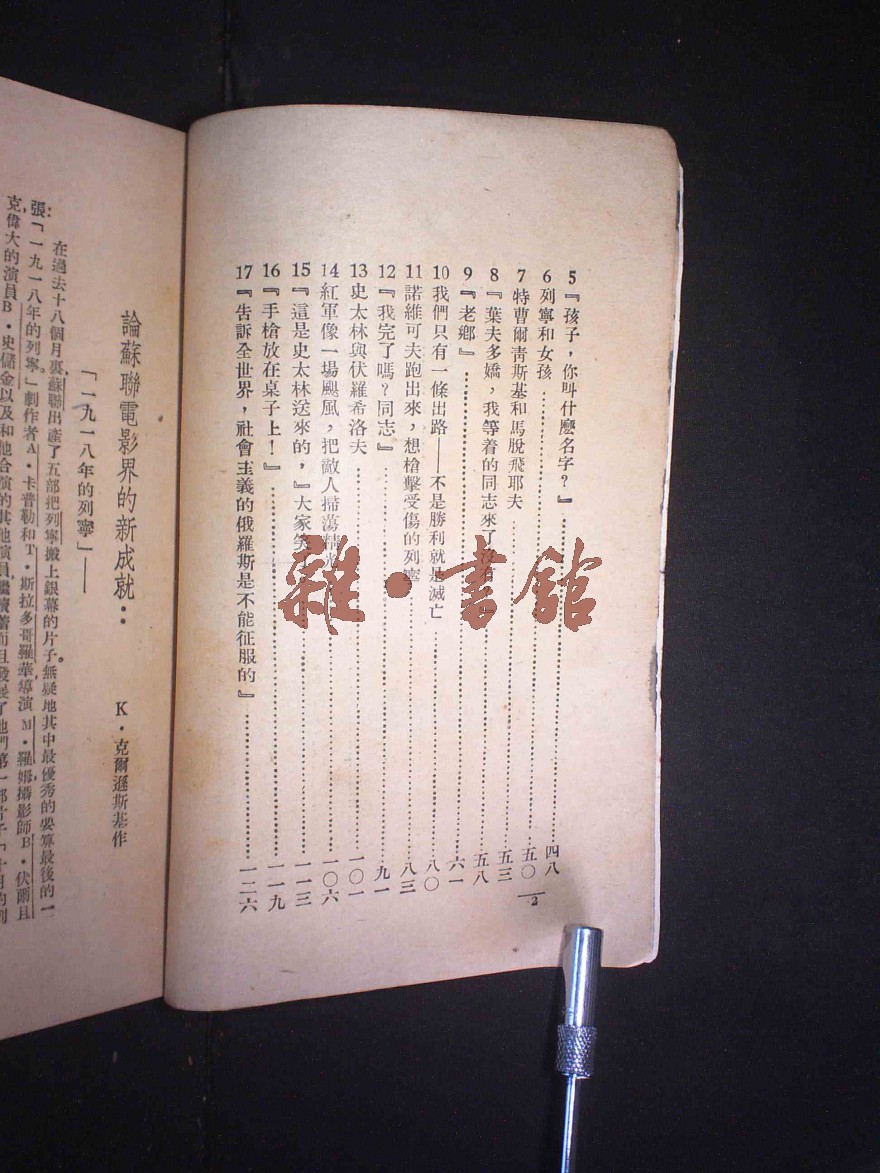 5『孩子，你叫什麼名字？』……四八
6 列寧和女孩……五〇
7 特曹爾靑斯基和馬脫飛耶夫……五三
8『葉夫多嬌，我等着的同志來了沒有……五八
9『老鄉』……六一
10 我們只有一條出路——不是勝利就是滅亡……八〇
11 諾維可夫跑出來，想槍擊受傷的列寧……八三
12『我完了嗎？同志』……九一
13 史太林與伏羅希洛夫……一〇一
14 紅軍像一場颶風，把敵人掃蕩精光……一〇六
15『這是史太林送來的，』大家笑了……一一三
16『手槍放在桌子上！』……一一九
17『告訴全世界，社會主義的俄羅斯是不能征服的』……一二六
2
雜·書館
論蘇聯電影界的新成就：
「一九一八年的列寧」——
K·克爾遜斯基作
在過去十八個月裏蘇聯出產了五部把列寧搬上銀幕的片子。無疑地其中最優秀的要算最後的一
張：「一九一八年的列寧」。劇作者A·卡普勒和T·斯拉多哥羅華，導演M·羅姆，攝影師B·伏爾且
克，偉大的演員B·史儲金以及和他合演的其他演員，繼續着而且發展了他們第一部片子「十月的列